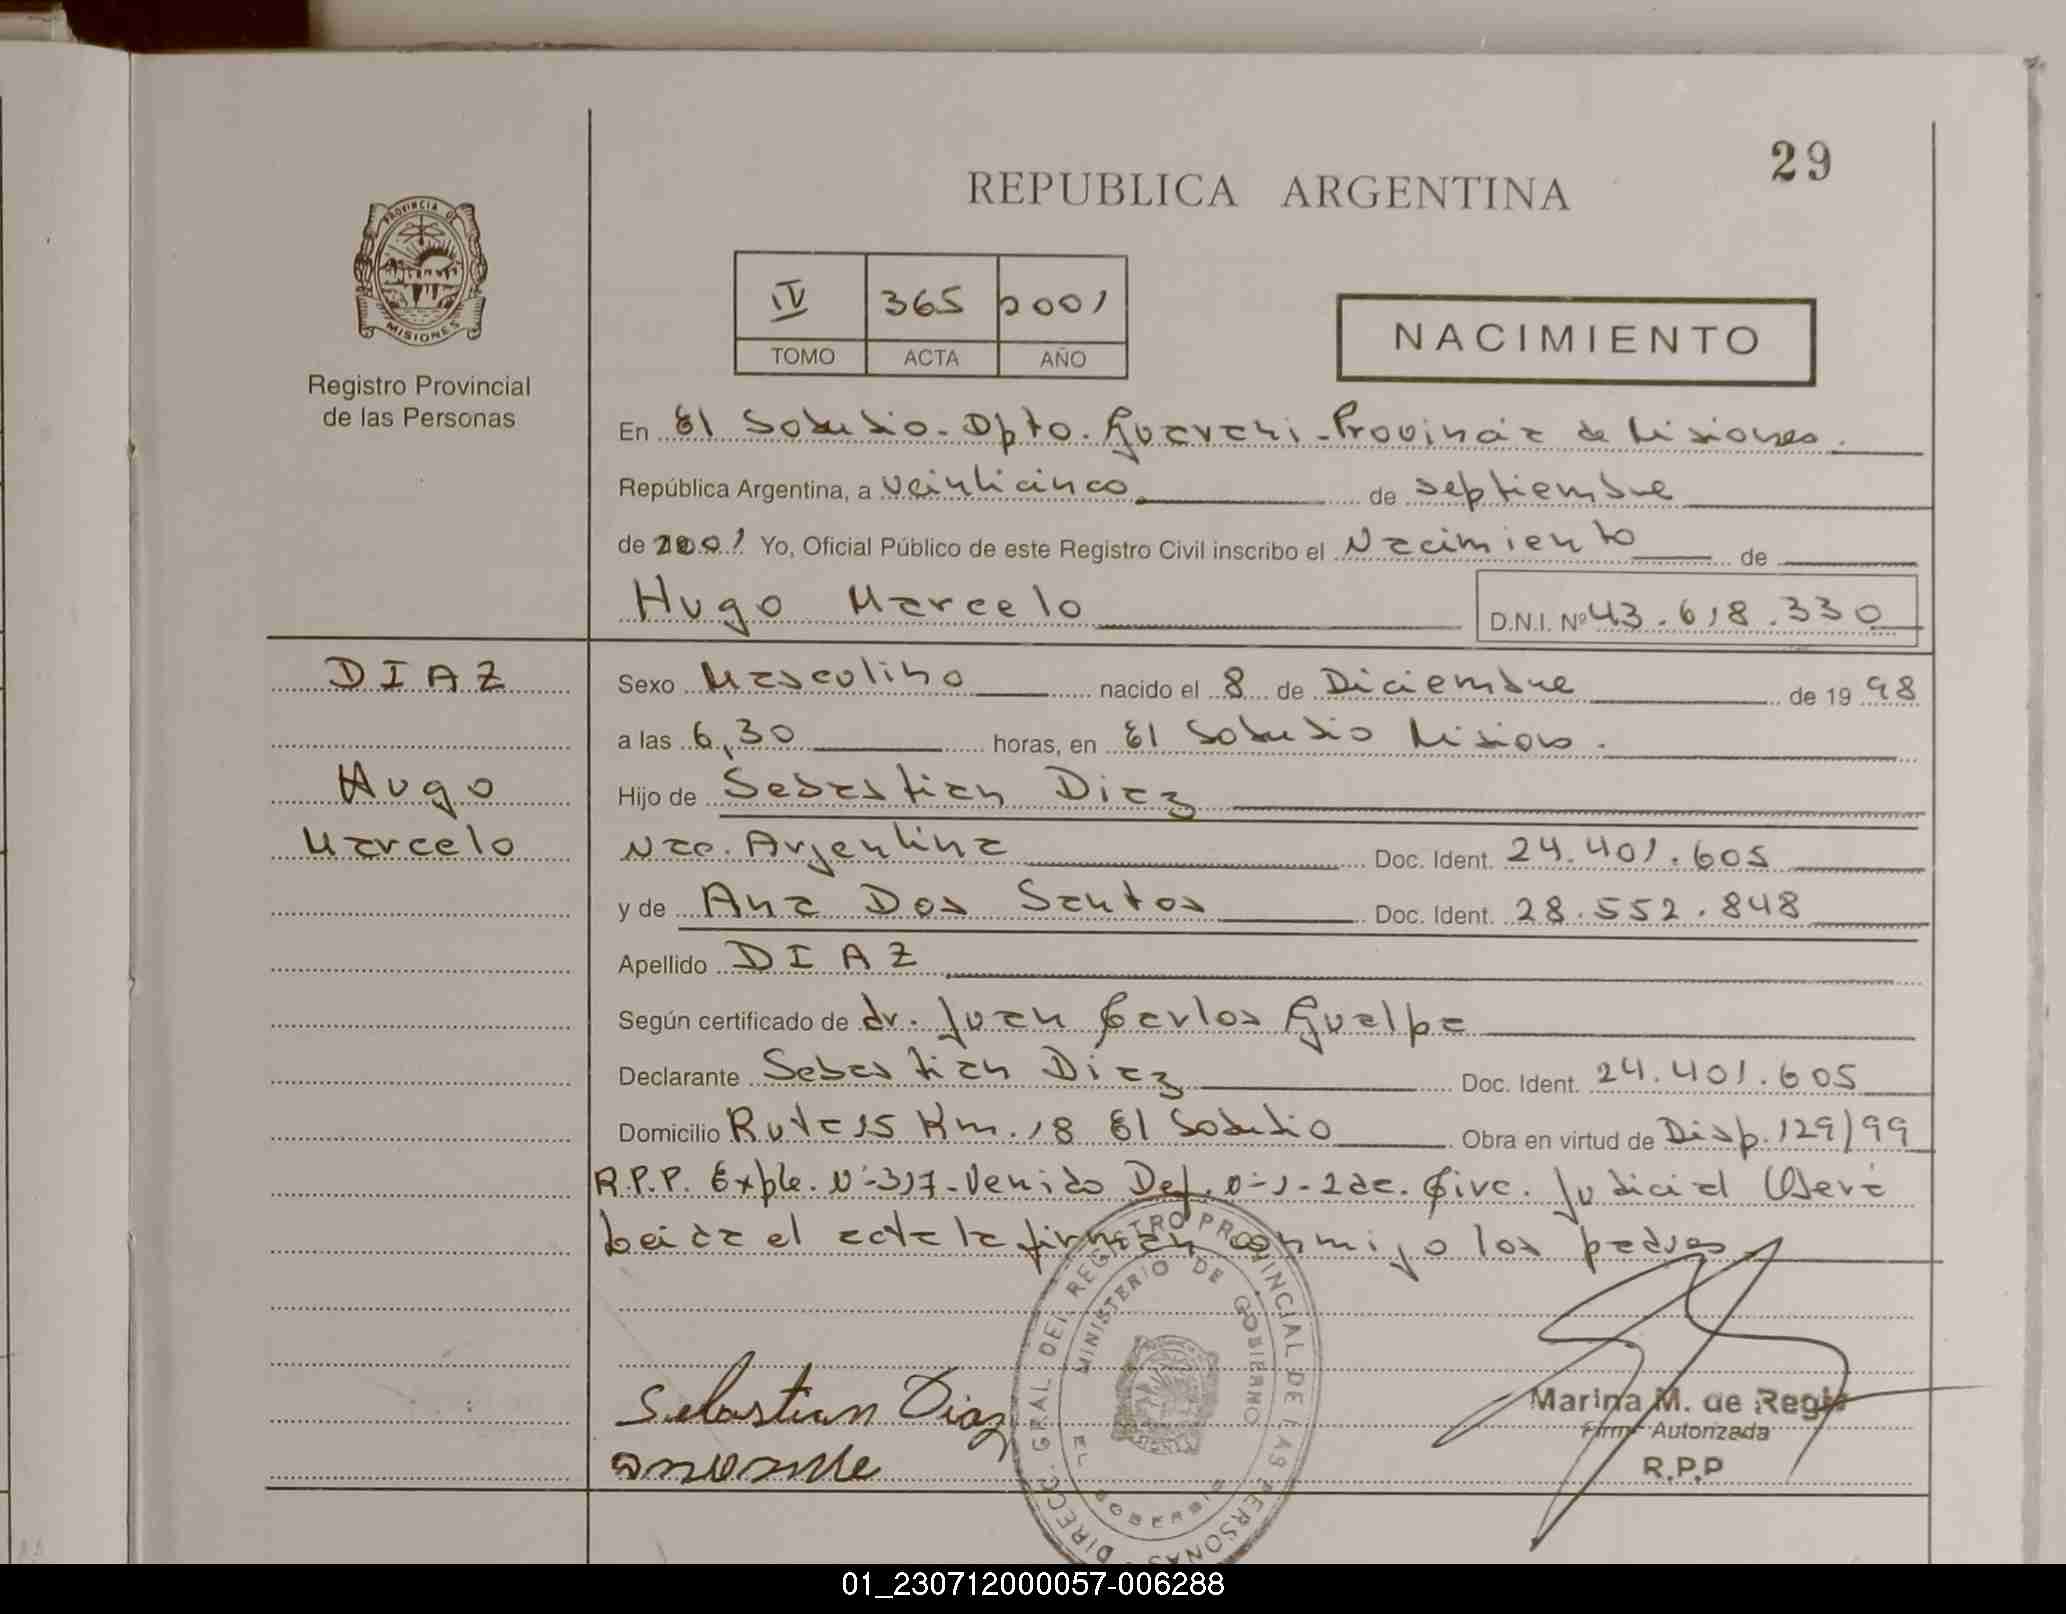 29
REPUBLICA ARGENTINA
PROVINCIA DE
MISIONES
Registro Provincial
de las Personas
IV 365 2001
TOMO ACTA AÑO
NACIMIENTO
En El Soberbio - Dpto. Guarani - Provincia de Misiones.
República Argentina, a veinticinco de septiembre
de 2001 Yo, Oficial Público de este Registro Civil inscribo el Nacimiento de
Hugo Marcelo D.N.I. Nº 43.618.330
DIAZ
Hugo
Marcelo
Sexo Masculino nacido el 8 de Diciembre de 19 98
a las 6,30 horas, en El Soberbio Misiones.
Hijo de Sebastian Diaz
Nac. Argentina Doc. Ident. 24.401.605
y de Ana Dos Santos Doc. Ident. 28.552.848
Apellido DIAZ
Según certificado de dr. Juan Carlos Gualpa
Declarante Sebastian Diaz Doc. Ident. 24.401.605
Domicilio Ruta 15 Km. 18 El Soberbio Obra en virtud de Disp. 129/99
R.P.P. Expte. Nº 317 - Venido Def. nº 1 - 2da. Circ. Judicial Oberá
Leida el acta la firman conmigo los padres
DIRECC. GRAL DEL REGISTRO PROVINCIAL DE LAS PERSONAS
MINISTERIO DE GOBIERNO
EL SOBERBIO
Sebastian Diaz
Marina M. de Regis
Firma Autorizada
R.P.P
01_230712000057-006288